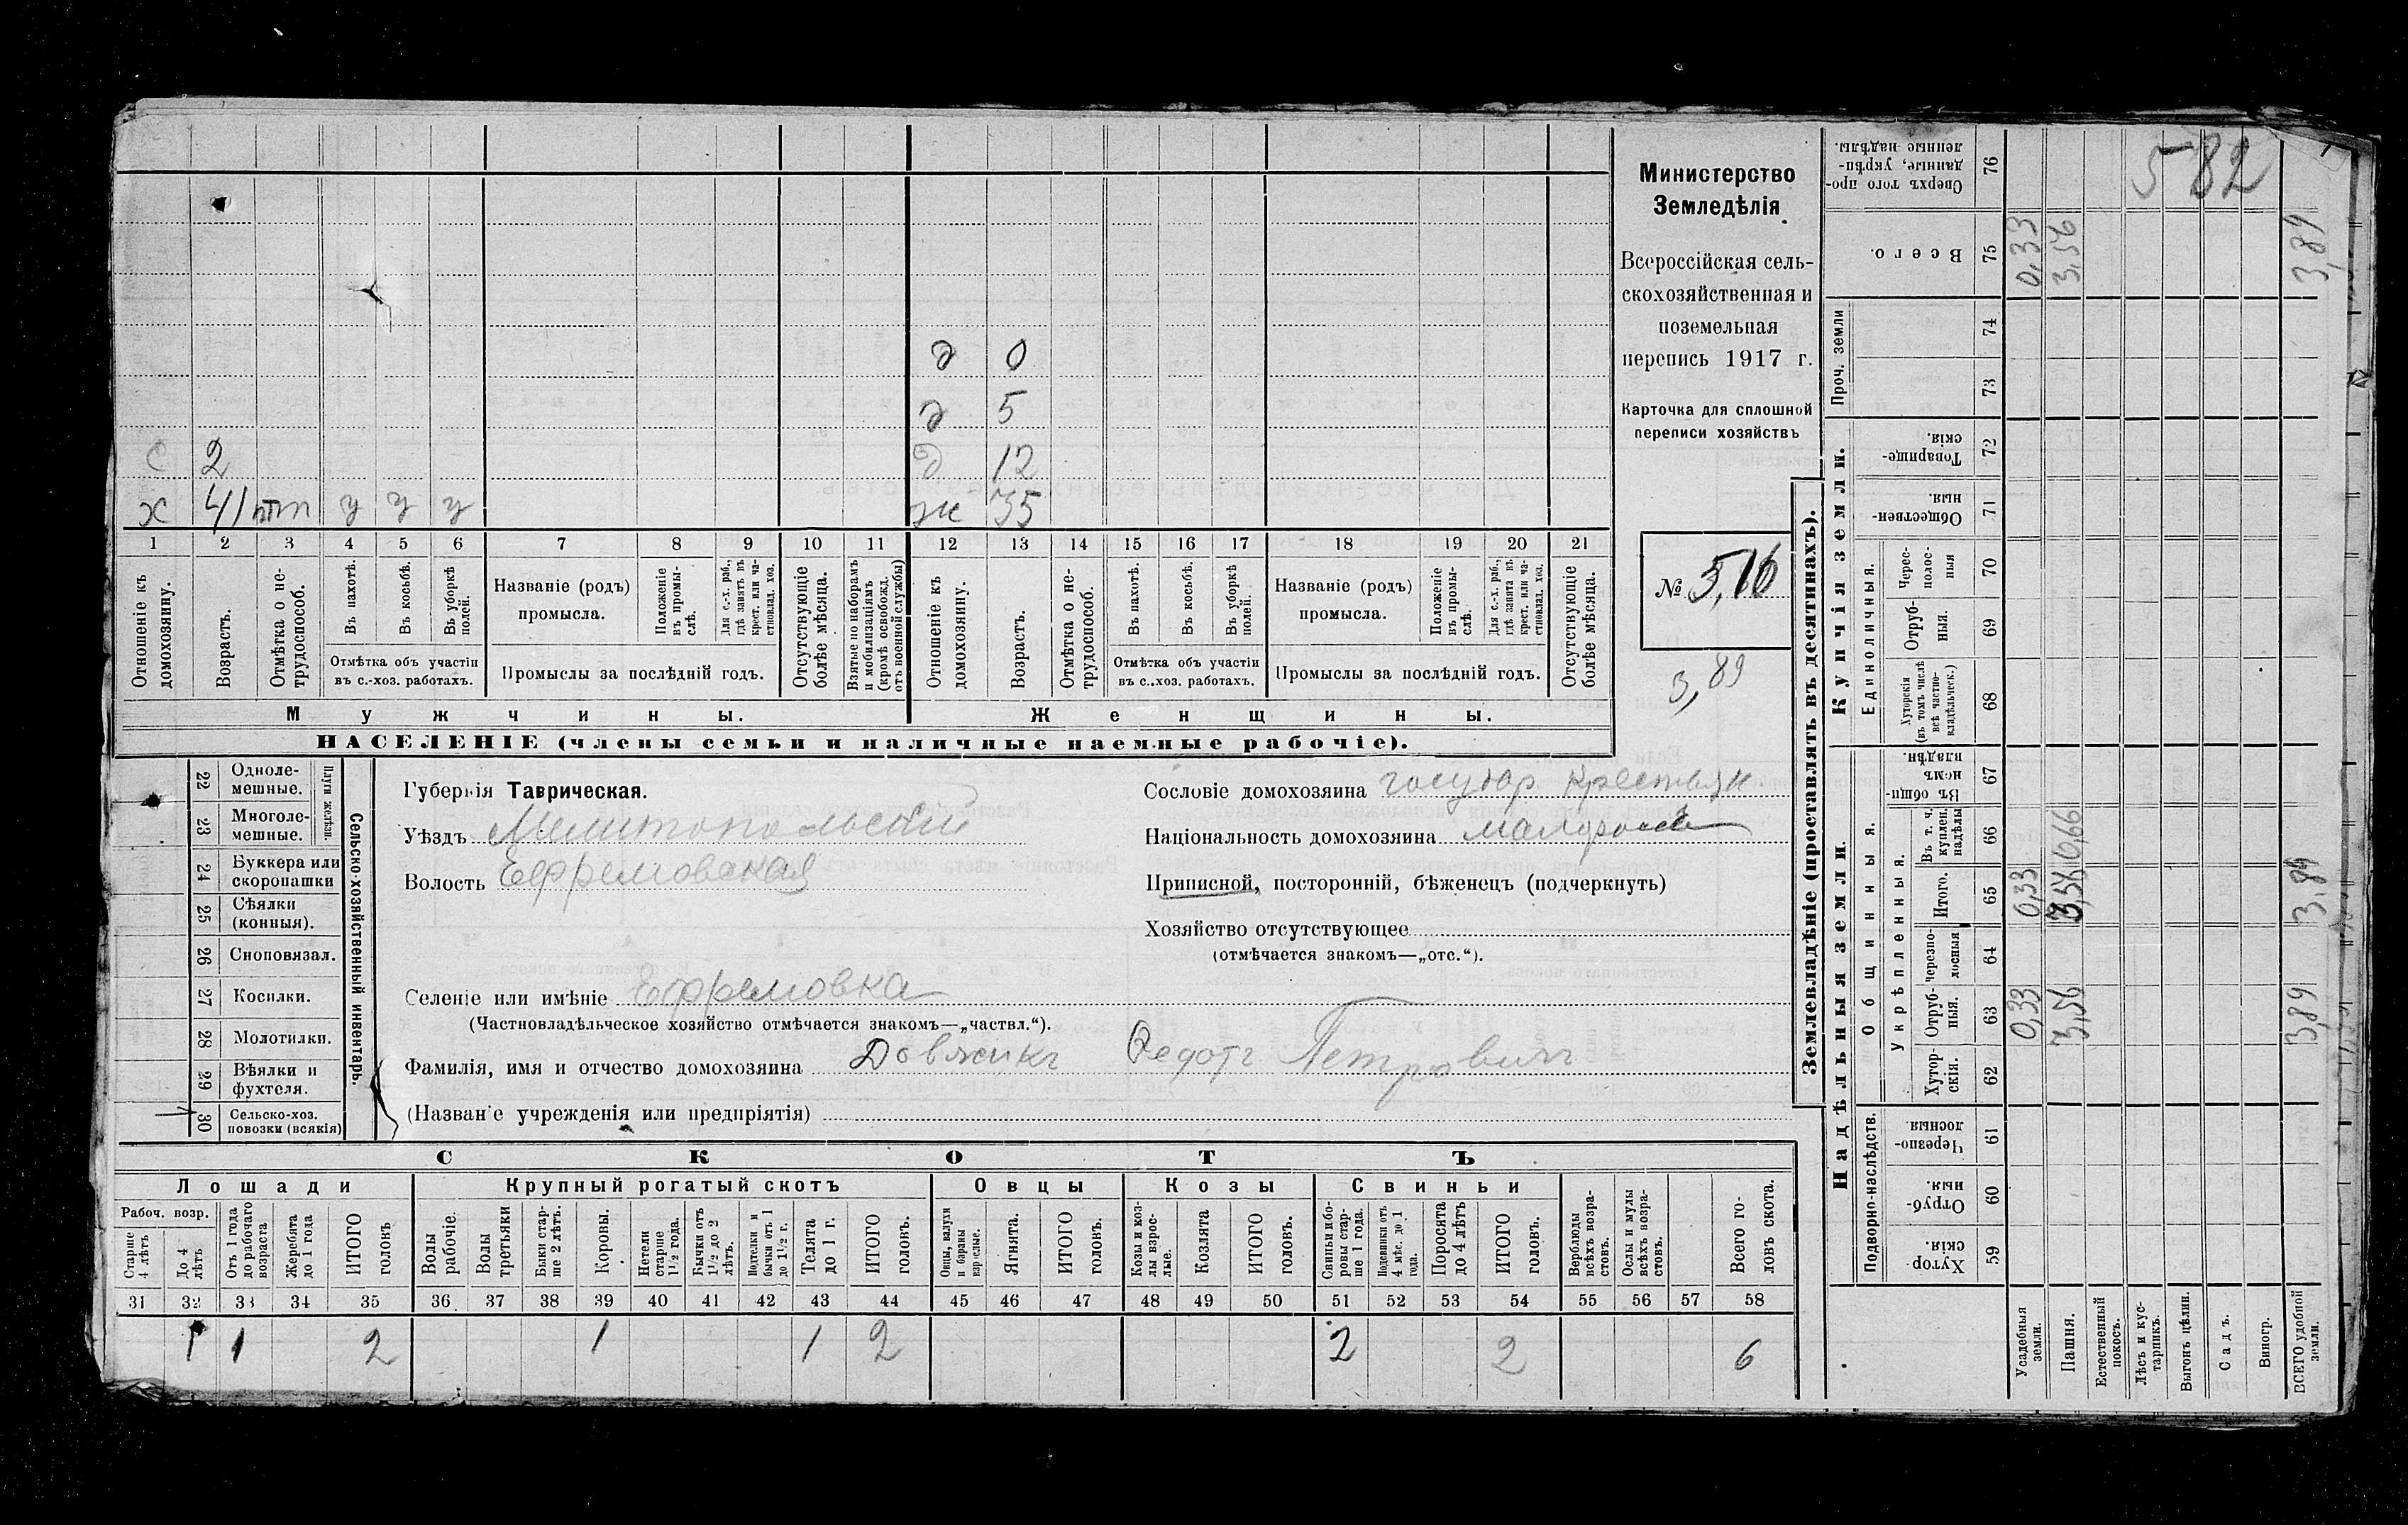 Министерство
Земледѣлія
Всероссійская сель-
скохозяйственная и
поземельная
перепись 1917 г.
Карточка для сплошной
переписи хозяйствъ
№ 516
3,89
582
д 0
д 5
с 2 д 12
х 41 у у у ж 35
1 2 3 4 5 6 7 8 9 10 11 12 13 14 15 16 17 18 19 20 21
Отношеніе къ домохозяину.
Возрастъ.
Отмѣтка о не-трудоспособ.
Въ пахотѣ.
Въ косьбѣ.
Въ уборкѣ полей.
Отмѣтка объ участіи
въ с.-хоз. работахъ.
Названіе (родъ)
промысла.
Положеніе въ промы-слѣ.
Для с.-х. раб., гдѣ занятъ въ крест. или ча-стновлад. хоз.
Промыслы за послѣдній годъ.
Отсутствующіе болѣе мѣсяца.
Взятые по наборамъ и мобилизаціямъ (кромѣ освобожд. отъ военной службы)
Отношеніе къ домохозяину.
Возрастъ.
Отмѣтка о не-трудоспособ.
Въ пахотѣ.
Въ косьбѣ.
Въ уборкѣ полей.
Отмѣтка объ участіи
въ с.-хоз. работахъ.
Названіе (родъ)
промысла.
Положеніе въ промы-слѣ.
Для с.-х. раб., гдѣ занятъ въ крест. или ча-стновлад. хоз.
Промыслы за послѣдній годъ.
Отсутствующіе болѣе мѣсяца.
Мужчины. Женщины.
НАСЕЛЕНІЕ (члены семьи и наличные наемные рабочіе).
Сельско-хозяйственный инвентарь.
Плуги желѣзн.
22 Одноле-мешные.
23 Многоле-мешные.
24 Буккера или скоропашки
25 Сѣялки (конныя).
26 Сноповязал.
27 Косилки.
28 Молотилки.
29 Вѣялки и фухтеля.
30 Сельско-хоз. повозки (всякія) 1
Губернія Таврическая.
Уѣздъ Мелитопольский
Волость Ефремовская
Селеніе или имѣніе Ефремовка
(Частновладѣльческое хозяйство отмѣчается знакомъ—„частвл.“).
Фамилія, имя и отчество домохозяина Довжикъ Федотъ Петровичъ
(Названіе учрежденія или предпріятія)
Сословіе домохозяина государ. крестьян.
Національность домохозяина малоросс
Приписной, посторонній, бѣженецъ (подчеркнуть)
Хозяйство отсутствующее
(отмѣчается знакомъ—„отс.“).
СКОТЪ
Лошади Крупный рогатый скотъ Овцы Козы Свиньи
Рабоч. возр.
Старше 4 лѣтъ
До 4 лѣтъ
Отъ 1 года до рабочаго возраста
Жеребята до 1 года
ИТОГО головъ
Волы рабочіе.
Волы третьяки
Быки стар-ше 2 лѣтъ.
Коровы.
Нетели старше 1 1/2 года.
Бычки отъ 1 1/2 до 2 лѣтъ.
Подтелки и бычки отъ 1 до 1 1/2 г.
Телята до 1 г.
ИТОГО головъ.
Овцы, валухи и бараны взрослые.
Ягнята.
ИТОГО головъ.
Козы и коз-лы взрос-лые.
Козлята
ИТОГО головъ.
Свиньи и бо-ровы стар-ше 1 года.
Подсвинки отъ 4 мѣс. до 1 года.
Поросята до 4 лѣтъ
ИТОГО головъ.
Верблюды всѣхъ возра-стовъ.
Ослы и мулы всѣхъ возра-стовъ.
Всего го-ловъ скота.
31 32 33 34 35 36 37 38 39 40 41 42 43 44 45 46 47 48 49 50 51 52 53 54 55 56 57 58
1 1 2 1 1 2 2 2 6
Землевладѣніе (проставлять въ десятинахъ).
Надѣльныя земли. Купчія земли. Проч. земли
Подворно-наслѣдств.
Общинныя.
Укрѣпленныя.
Единоличныя.
59 Хутор-скія.
60 Отруб-ныя.
61 Черезпо-лосныя.
62 Хутор-скія.
63 Отруб-ныя. 0,33 3,56 3,89
64 черезпо-лосныя
65 Итого. 0,33 3,56 3,89
66 Въ т. ч. куплен. надѣлы 0,66
67 Въ общи-номъ владѣн.
68 Хуторскія (въ томъ числѣ всѣ частно-владѣльческ.)
69 Отруб-ныя.
70 Черес-полос-ныя
71 Обществен-ныя.
72 Товарище-скія.
73
74
75 Всего. 0,33 3,56 3,89
76 Сверхъ того про-данные, укрѣп-ленные надѣлы.
Усадебныя земли.
Пашня.
Естественный покосъ.
Лѣсъ и кус-тарникъ.
Выгонъ цѣлин.
Садъ.
Виногр.
ВСЕГО удобной земли.